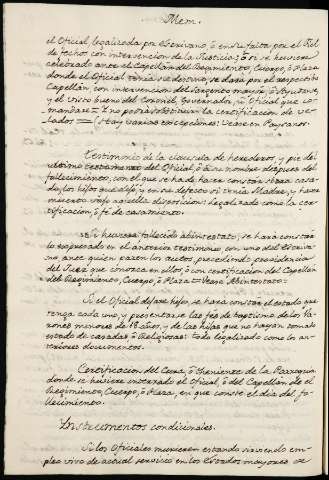 Mem.
el Oficial, legalizada por Escrivano, ò en su falta por el Fiel
de fechos con intervencion de la Justicia; ò si se huviere
celebrado ante el Capellan del Regimiento, Cuerpo, ò Plaza
donde el Oficial tenia su destino, se dara por el respectibo
Capellan, con intervencion del Sargento mayor, ò Ayudante,
y el visto bueno del Coronel, Governador, ù Oficial que co-
mandare = No podrà obstruir la certificacion de ve-
lados = (Hay varias excepciones: Vease en Paysanos.
Testimonio de la clausula de herederos, y pie del
ultimo testamento del Oficial, ò de su nombre despues del
fallecimiento, con el que se ha de hacer constar si era casa-
do, los hijos que dejò, y en su defecto si tenia Madre, y haver
muerto vajo aquella disposicion: legalizado como la cer-
tificacion, ò fé de casamiento.
Si huviere fallecido abintestato, se hara constar
lo expresado en el anterior testimonio, con uno del Escriva-
no, ante quien pasen los autos, precediendo providencia
del Juez que conozca en ellos, ò con certificacion del Capellan
del Regimiento, Cuerpo, ò Plaza = Vease Abintestato =
Si el Oficial dejare hijos, se hara constar el estado que
tenga cada uno, y presentarse las fees de baptismo de los Va-
rones menores de 18 años, y de las hijas que no hayan tomado
estado de casadas ò Religiosas: todo legalizado como los an-
teriores documentos.
Certificacion del Cura, ò theniente de la Parroquia
donde se huviere enterrado el Oficial, ò del Capellan de el
Regimiento, Cuerpo, ò Plaza, en que conste el dia del fa-
llecimiento.
Instrumentos condicionales.
Si los Oficiales murieren estando sirviendo em-
pleo vivo de actual servicio en los Estados mayores de